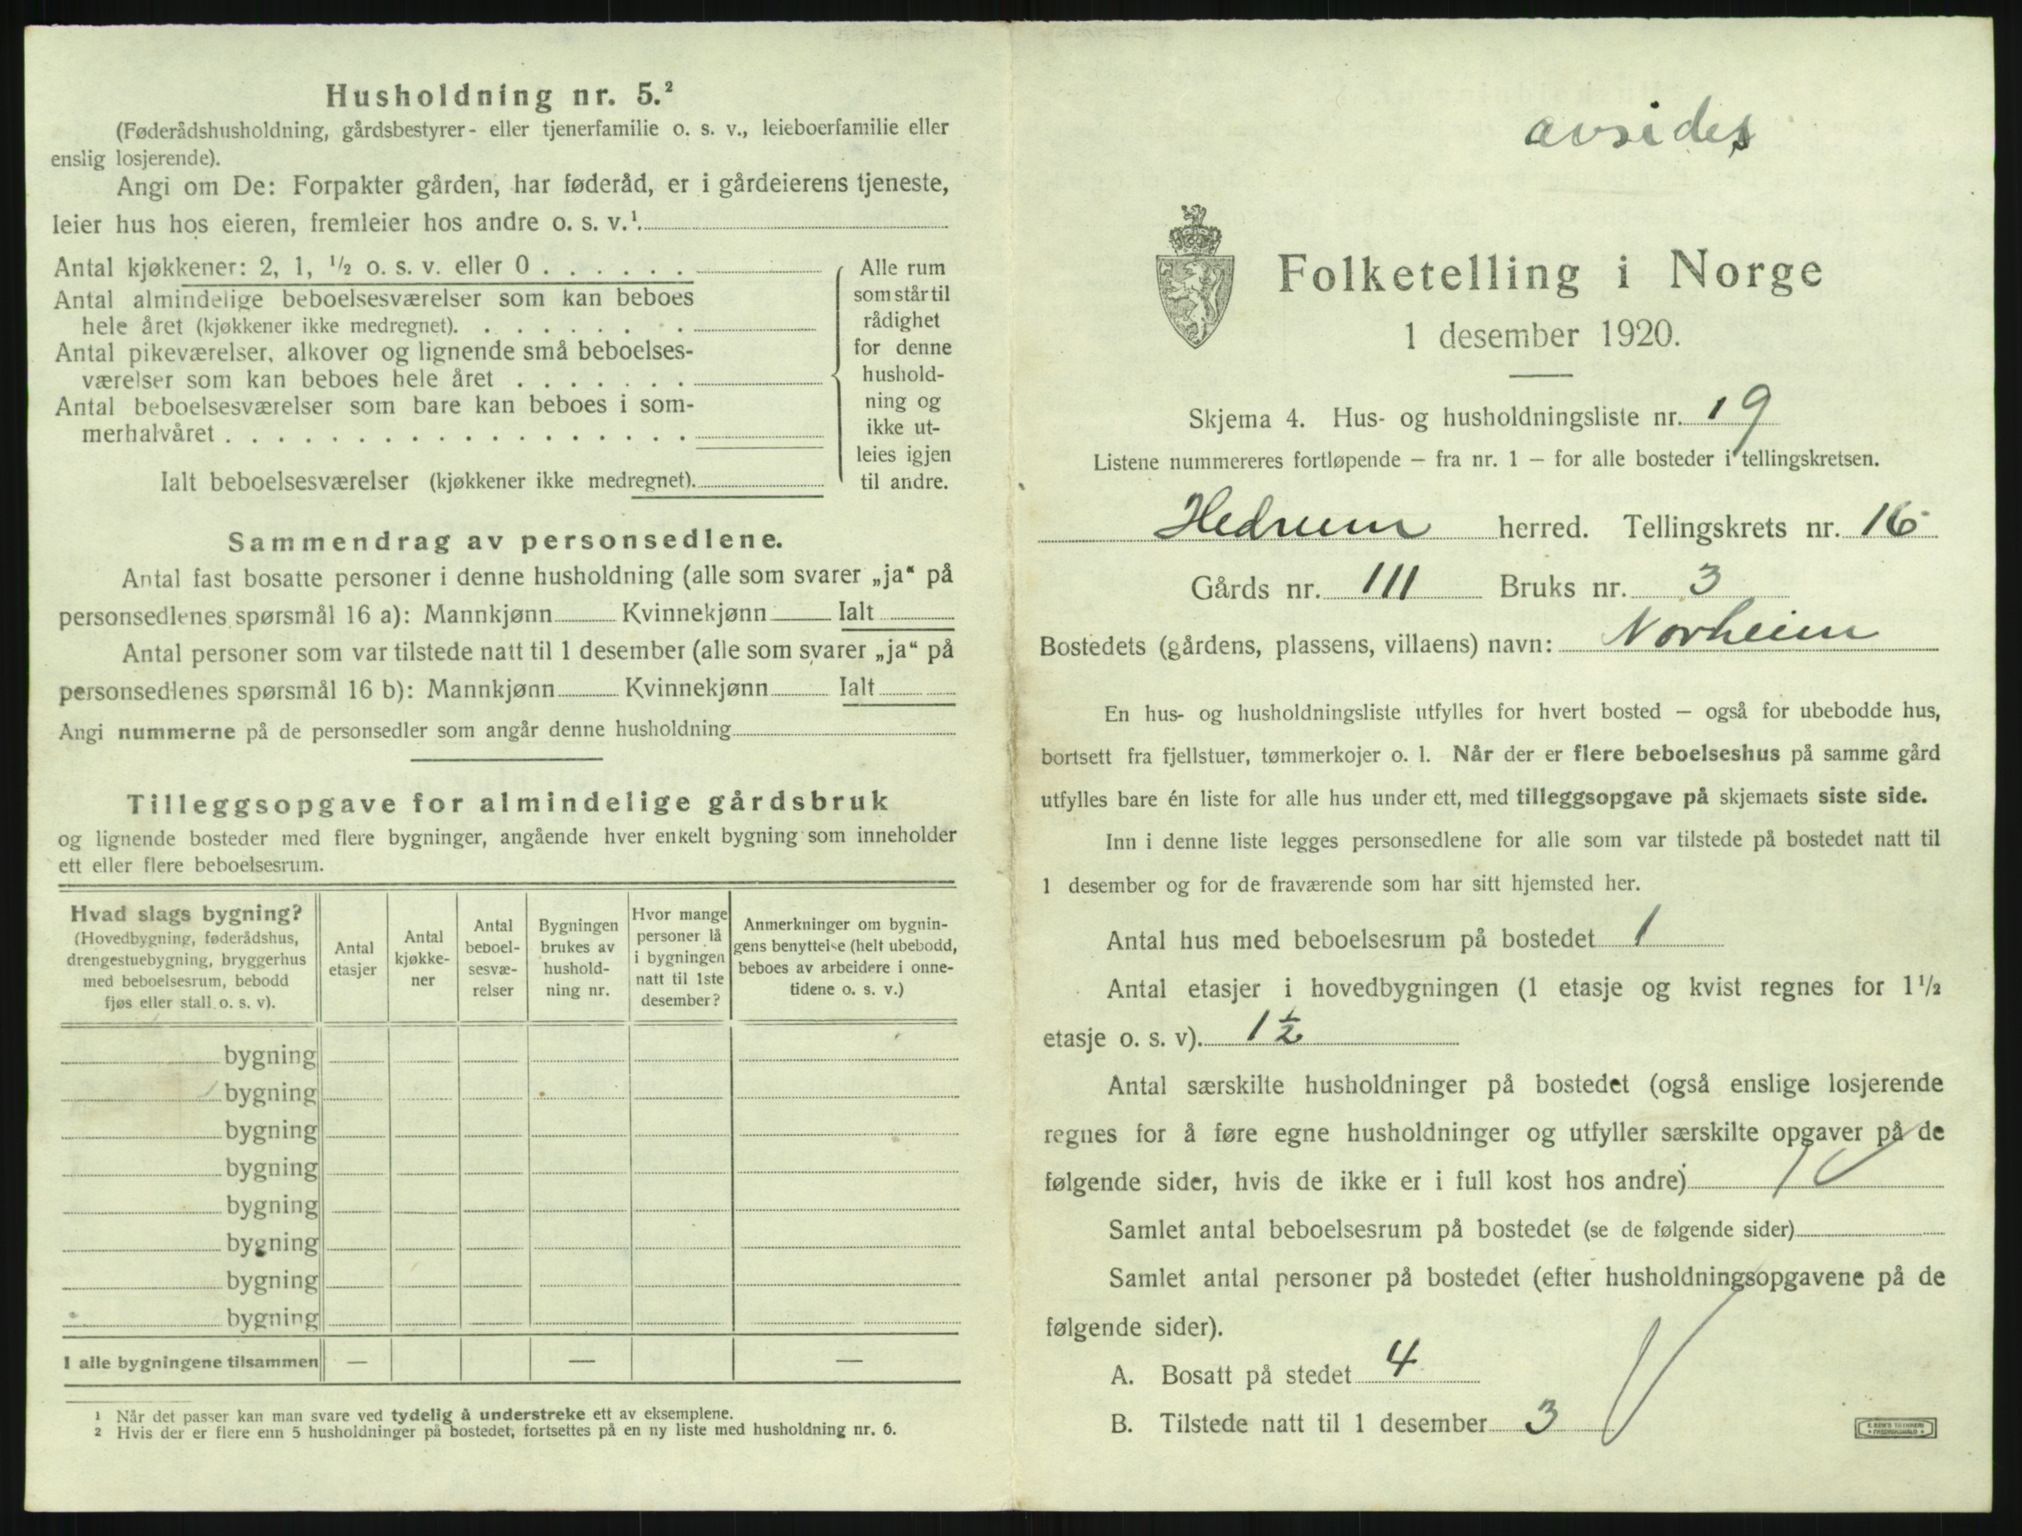 Husholdning nr. 5.²
(Føderådshusholdning, gårdsbestyrer- eller tjenerfamilie o. s. v., leieboerfamilie eller
enslig losjerende).
Angi om De: Forpakter gården, har føderåd, er i gårdeierens tjeneste,
leier hus hos eieren, fremleier hos andre o. s. v.¹
Antal kjøkkener: 2, 1, ½ o. s. v. eller 0 . . . . . .
Antal almindelige beboelsesværelser som kan beboes
hele året (kjøkkener ikke medregnet). . . . . . . .
Antal pikeværelser, alkover og lignende små beboelses-
værelser som kan beboes hele året . . . . . . .
Antal beboelsesværelser som bare kan beboes i som-
merhalvåret . . . . . . . . . . . . . . . . . .
Ialt beboelsesværelser (kjøkkener ikke medregnet).
Alle rum
som står til
rådighet
for denne
hushold-
ning og
ikke ut-
leies igjen
til andre.
Sammendrag av personsedlene.
Antal fast bosatte personer i denne husholdning (alle som svarer „ja“ på
personsedlenes spørsmål 16 a): Mannkjønn Kvinnekjønn Ialt
Antal personer som var tilstede natt til 1 desember (alle som svarer „ja“ på
personsedlenes spørsmål 16 b): Mannkjønn Kvinnekjønn Ialt
Angi nummerne på de personsedler som angår denne husholdning
Tilleggsopgave for almindelige gårdsbruk
og lignende bosteder med flere bygninger, angående hver enkelt bygning som inneholder
ett eller flere beboelsesrum.
Hvad slags bygning?
(Hovedbygning, føderådshus,
drengestuebygning, bryggerhus
med beboelsesrum, bebodd
fjøs eller stall o. s. v).
Antal
etasjer
Antal
kjøkke-
ner
Antal
beboel-
sesvæ-
relser
Bygningen
brukes av
hushold-
ning nr.
Hvor mange
personer lå
i bygningen
natt til 1ste
desember?
Anmerkninger om bygnin-
gens benyttelse (helt ubebodd,
beboes av arbeidere i onne-
tidene o. s. v.)
bygning
bygning
bygning
bygning
bygning
bygning
bygning
bygning
I alle bygningene tilsammen — — —
¹ Når det passer kan man svare ved tydelig å understreke ett av eksemplene.
² Hvis der er flere enn 5 husholdninger på bostedet, fortsettes på en ny liste med husholdning nr. 6.
avsides
Folketelling i Norge
1 desember 1920.
Skjema 4. Hus- og husholdningsliste nr. 19
Listene nummereres fortløpende — fra nr. 1 — for alle bosteder i tellingskretsen.
Hedrum herred. Tellingskrets nr. 16
Gårds nr. 111 Bruks nr. 3
Bostedets (gårdens, plassens, villaens) navn: Norheim
En hus- og husholdningsliste utfylles for hvert bosted — også for ubebodde hus,
bortsett fra fjellstuer, tømmerkojer o. l. Når der er flere beboelseshus på samme gård
utfylles bare én liste for alle hus under ett, med tilleggsopgave på skjemaets siste side.
Inn i denne liste legges personsedlene for alle som var tilstede på bostedet natt til
1 desember og for de fraværende som har sitt hjemsted her.
Antal hus med beboelsesrum på bostedet 1
Antal etasjer i hovedbygningen (1 etasje og kvist regnes for 1½
etasje o. s. v). 1½
Antal særskilte husholdninger på bostedet (også enslige losjerende
regnes for å føre egne husholdninger og utfyller særskilte opgaver på de
følgende sider, hvis de ikke er i full kost hos andre) 1
Samlet antal beboelsesrum på bostedet (se de følgende sider)
Samlet antal personer på bostedet (efter husholdningsopgavene på de
følgende sider).
A. Bosatt på stedet 4
B. Tilstede natt til 1 desember 3